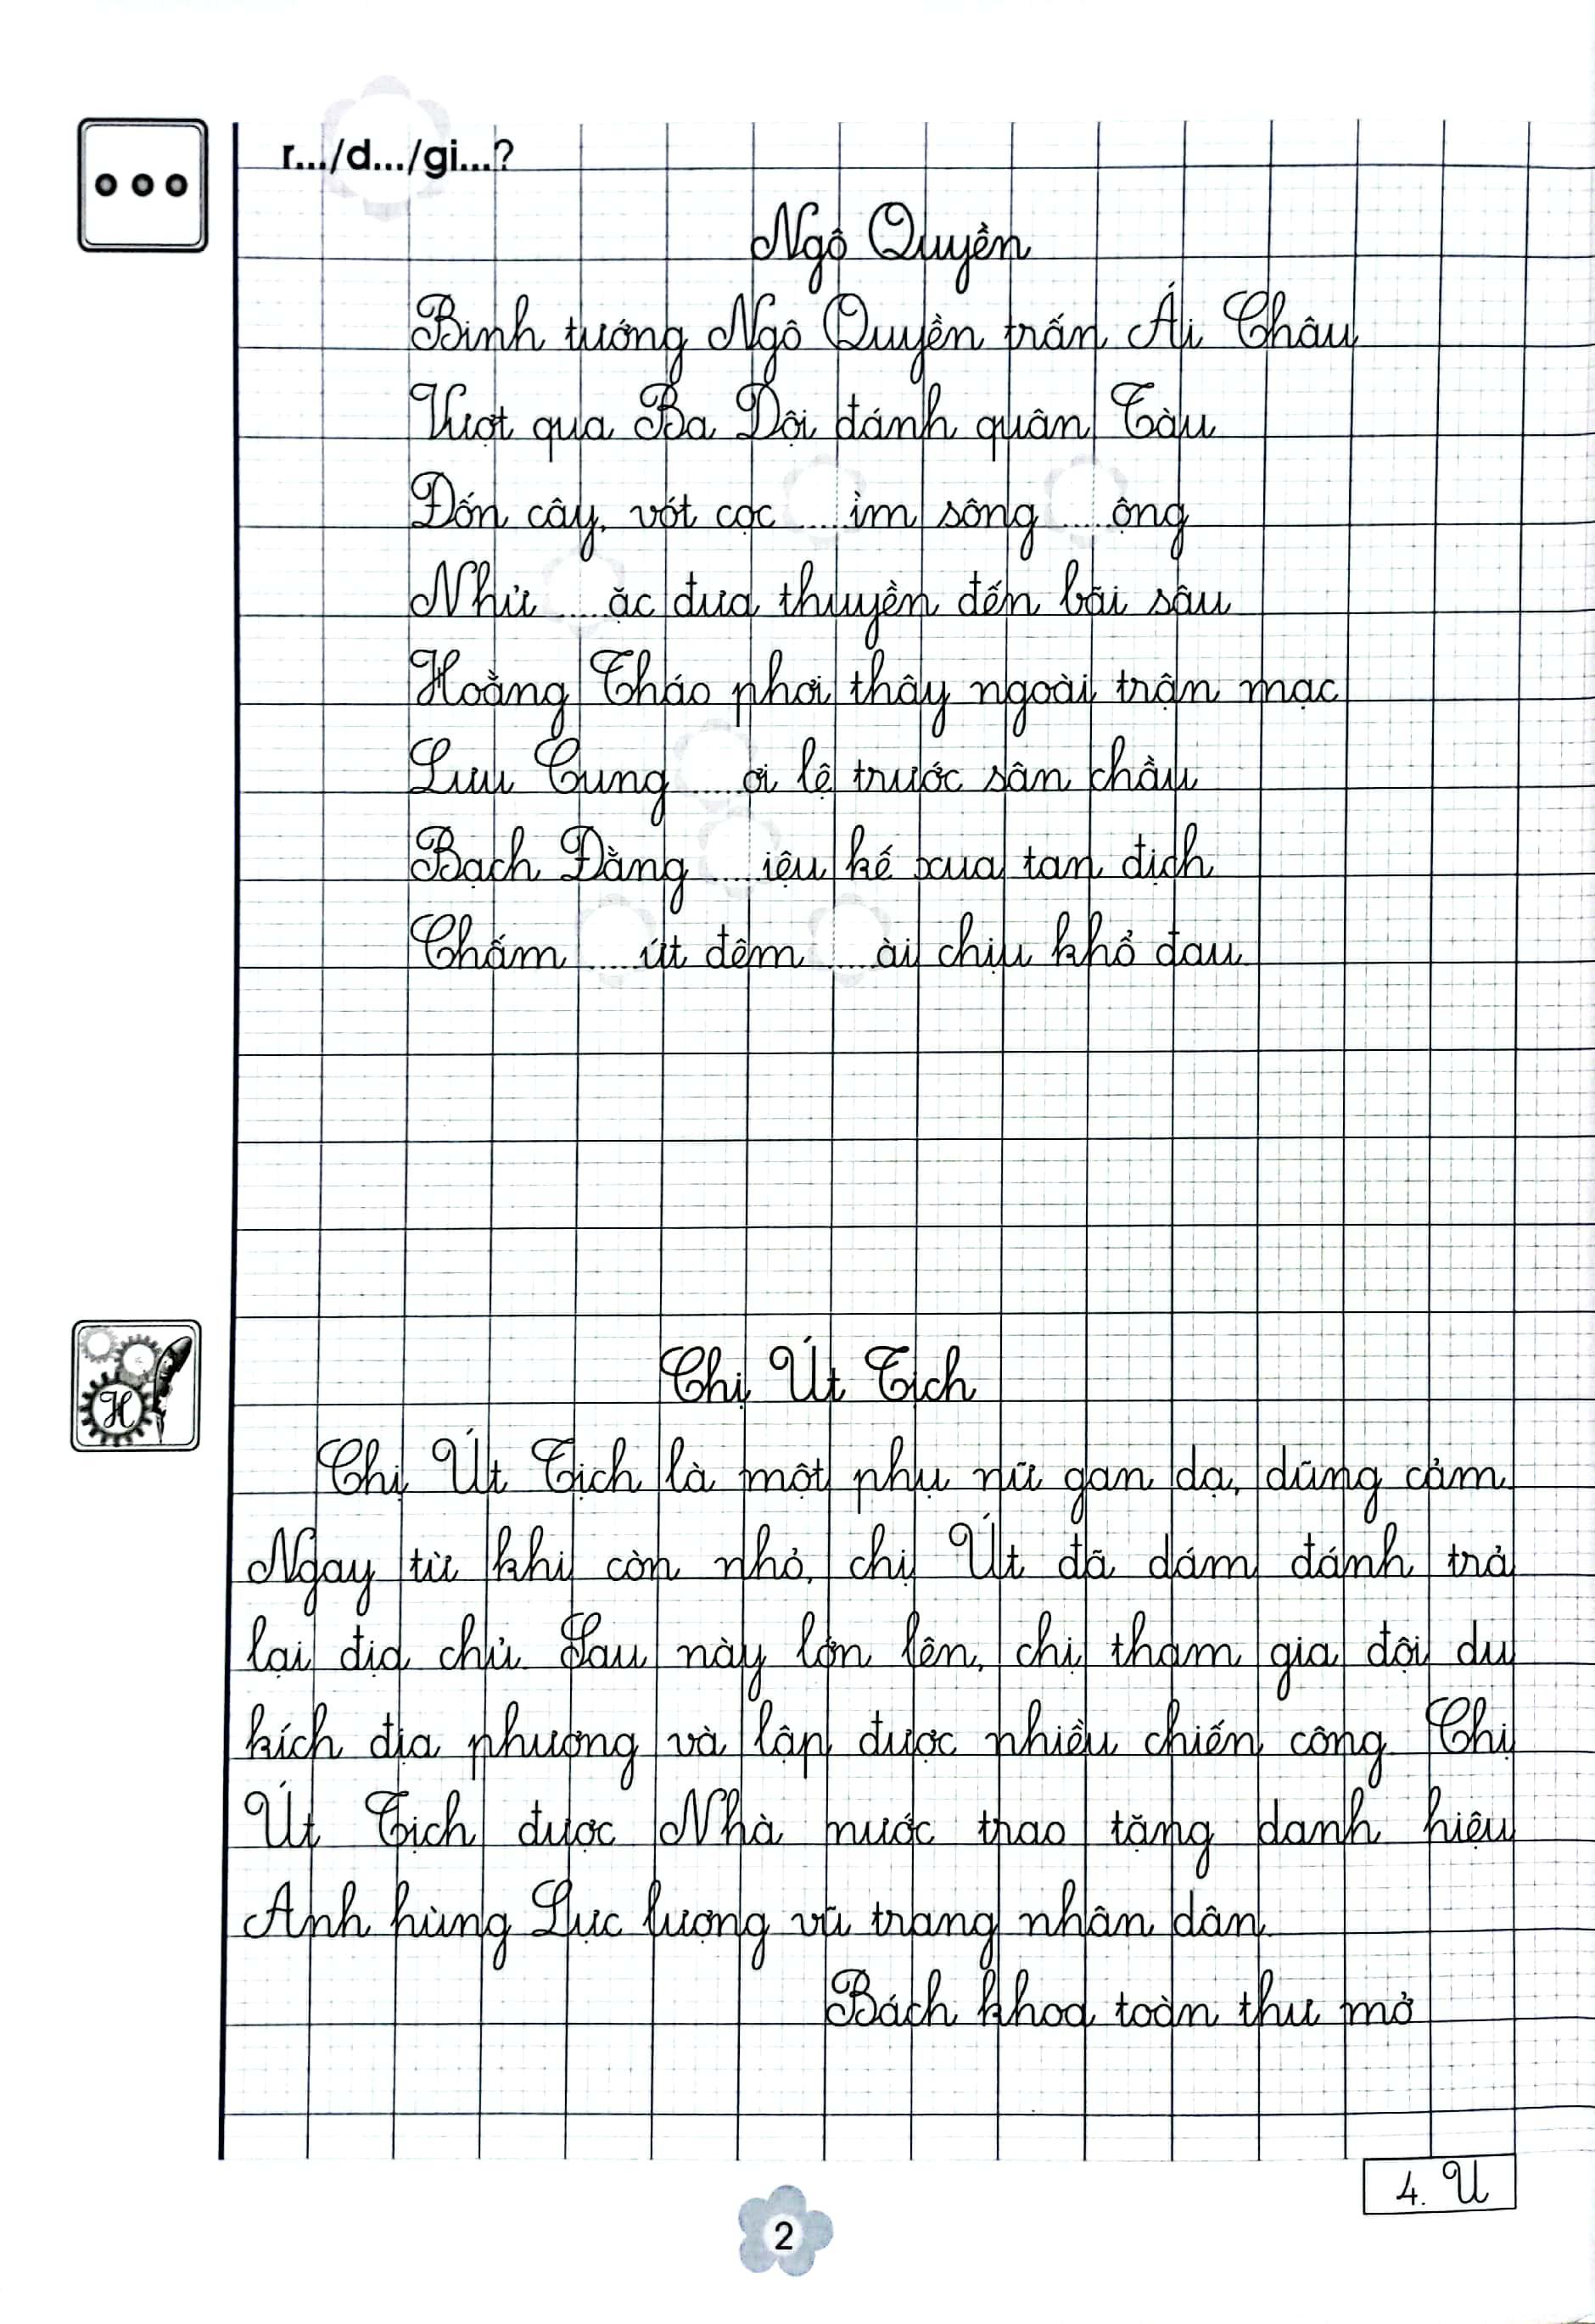 r.../d.../gi...?
Ngô Quyền
Binh tướng Ngô Quyền trấn Ái Châu
Vượt qua Ba Dội đánh quân Tàu
Đốn cây, vót cọc ....ìm sông ....ông
Nhử ....ặc đưa thuyền đến bãi sâu
Hoằng Tháo phơi thây ngoài trận mạc
Lưu Cung ....ơi lệ trước sân chầu
Bạch Đằng ....iệu kế xua tan địch
Chấm ....ứt đêm ....ài chịu khổ đau.
H
Chị Út Tịch
Chị Út Tịch là một phụ nữ gan dạ, dũng cảm.
Ngay từ khi còn nhỏ, chị Út đã dám đánh trả
lại địa chủ. Sau này lớn lên, chị tham gia đội du
kích địa phương và lập được nhiều chiến công. Chị
Út Tịch được Nhà nước trao tặng danh hiệu
Anh hùng Lực lượng vũ trang nhân dân.
Bách khoa toàn thư mở
4. U
2